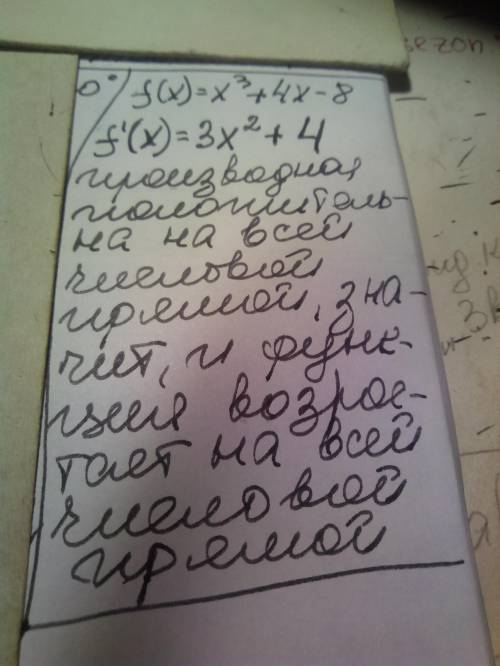 f(x)=x³+4x-8
f'(x)=3x²+4
производная
положитель-
на на всей
числовой
прямой, зна-
чит, и функ-
ция возрас-
тает на всей
числовой
прямой
sezon